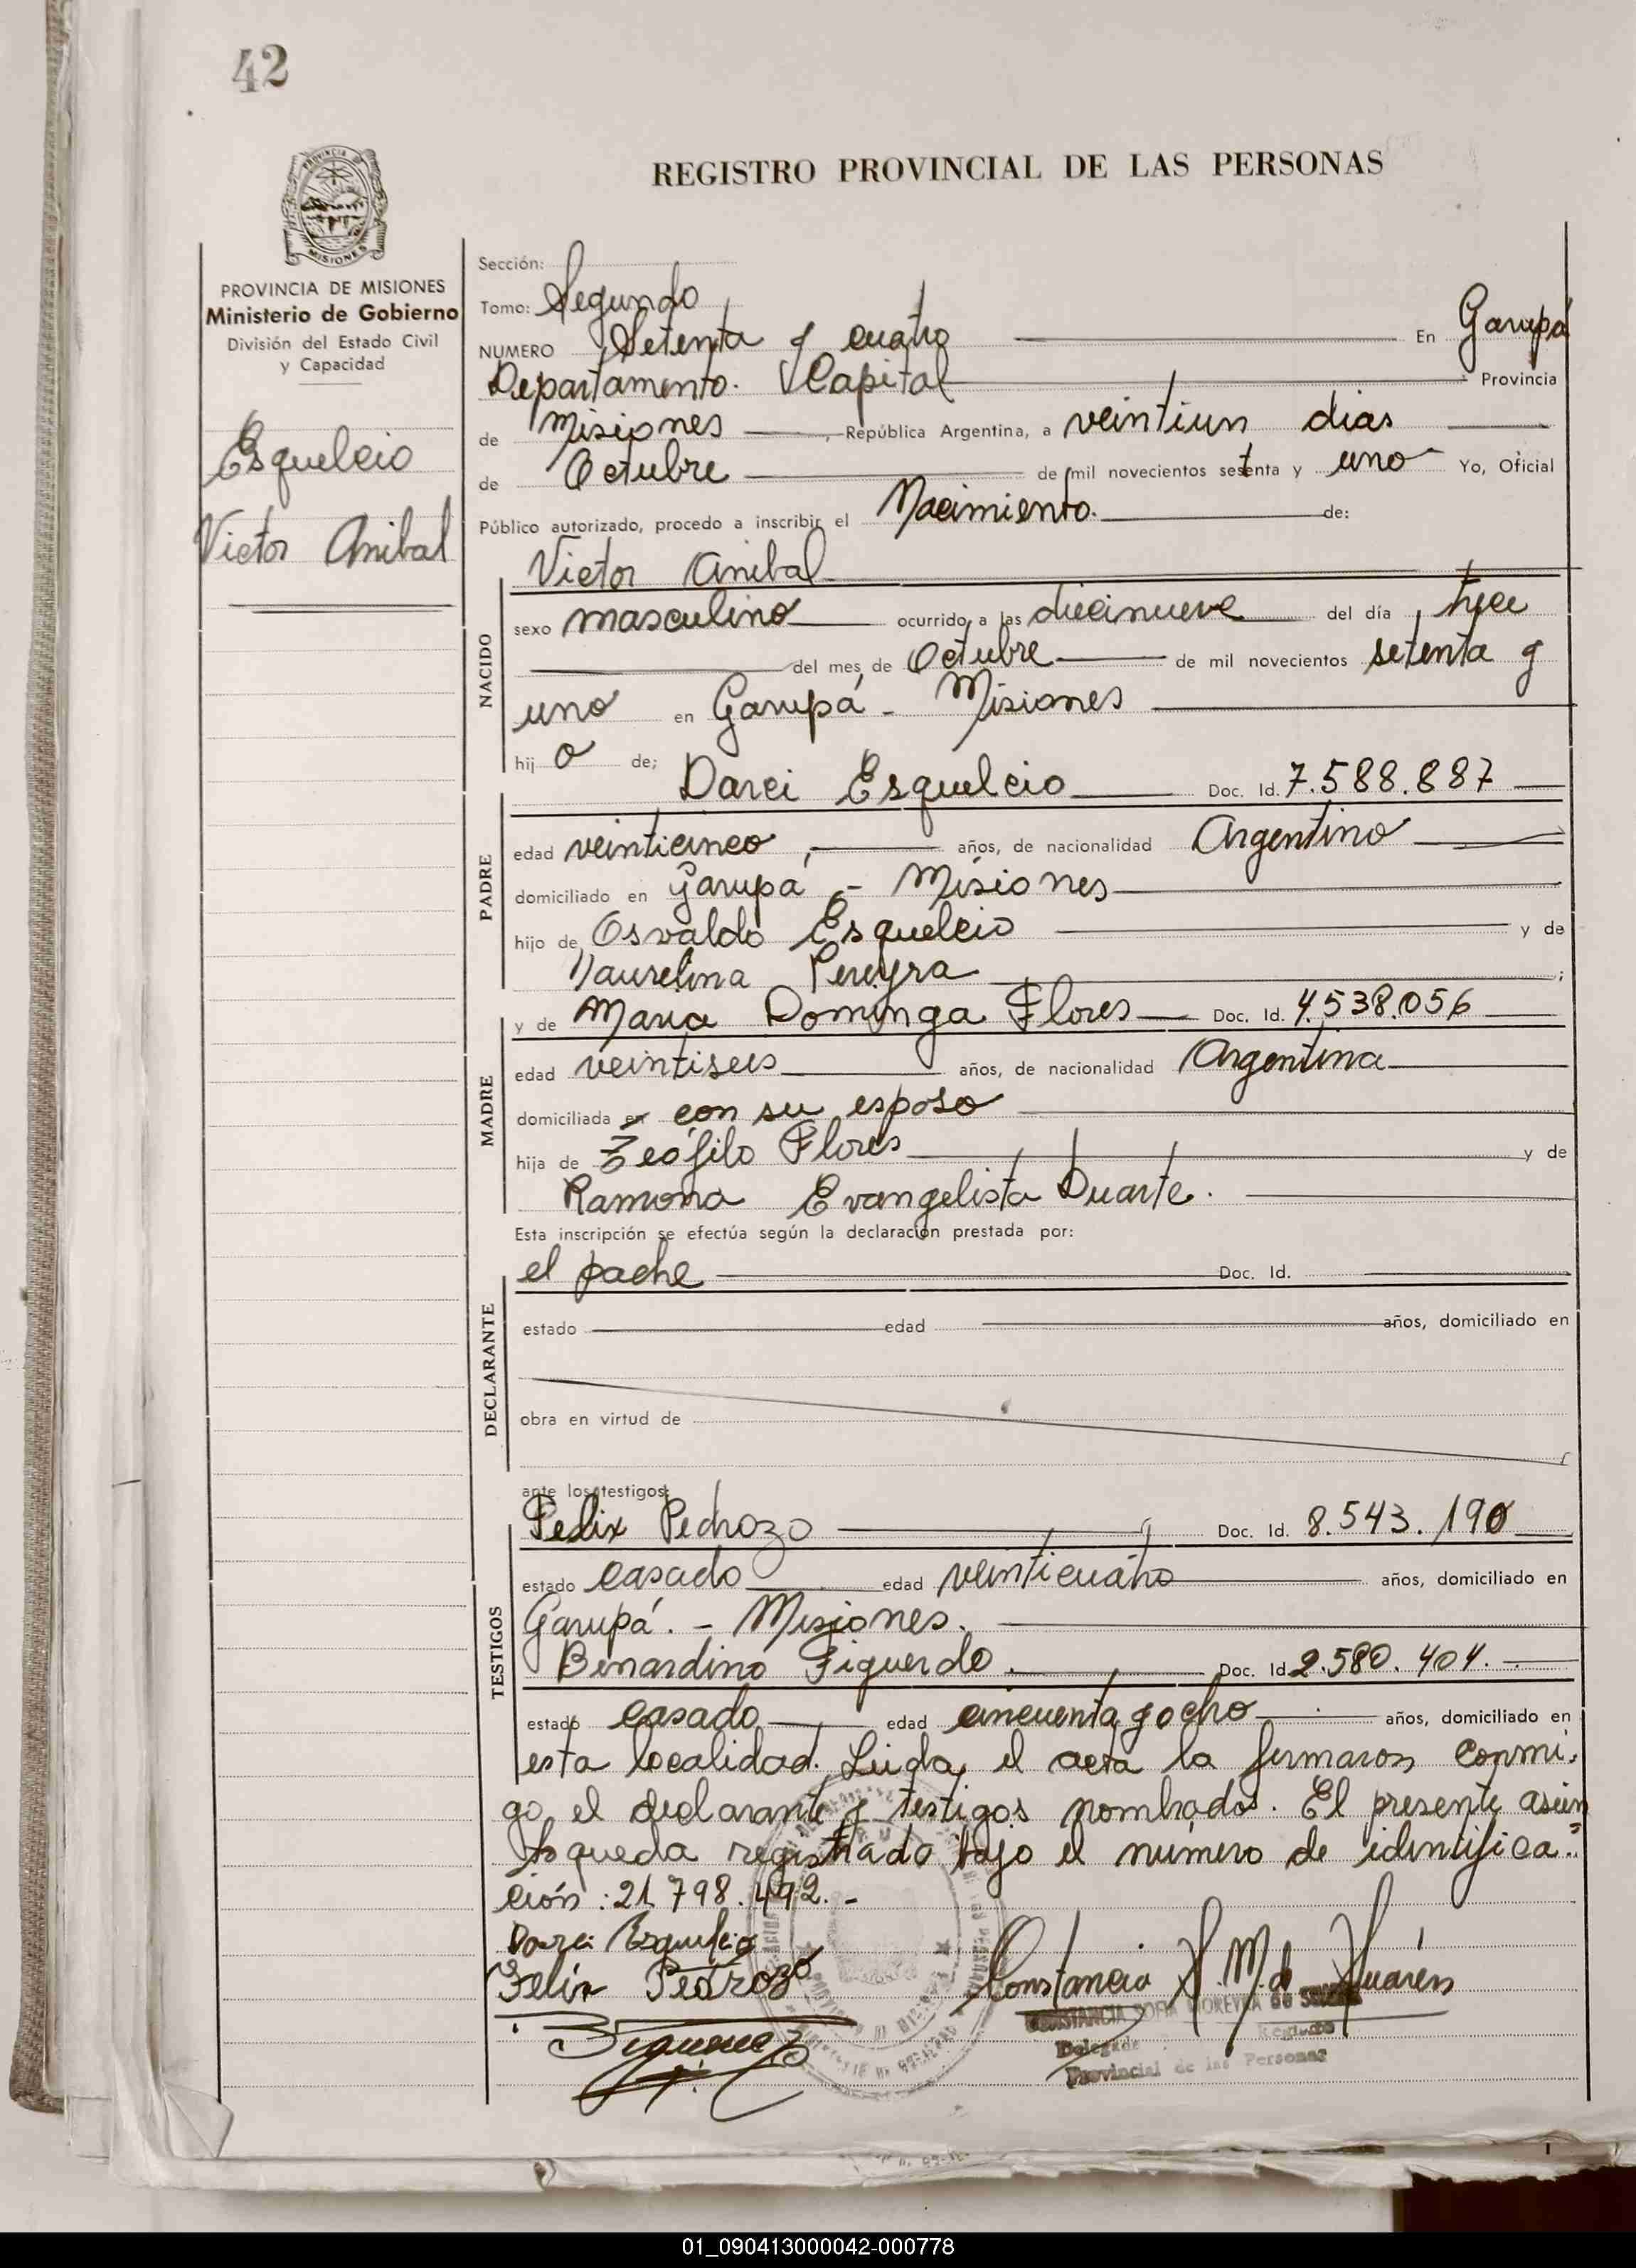 42
REGISTRO PROVINCIAL DE LAS PERSONAS
PROVINCIA
MISIONES
PROVINCIA DE MISIONES
Ministerio de Gobierno
División del Estado Civil
y Capacidad
Esquelcio
Victor Anibal
Sección:
Tomo: Segundo
NUMERO Setenta y cuatro En Garupá
Departamento. Capital Provincia
de Misiones, República Argentina, a veintiun dias
de Octubre de mil novecientos setenta y uno Yo, Oficial
Público autorizado, procedo a inscribir el Nacimiento. de:
Victor Anibal
NACIDO
sexo masculino ocurrido a las diecinueve del día trece
del mes de Octubre de mil novecientos setenta y
uno en Garupá - Misiones
hij o de;
Darci Esquelcio Doc. Id. 7.588.887
PADRE
edad veinticinco, años, de nacionalidad Argentino
domiciliado en Garupá - Misiones
hijo de Osvaldo Esquelcio y de
Laurelina Pereyra ;
y de Maria Dominga Flores Doc. Id. 4.538.056
MADRE
edad veintiseis años, de nacionalidad Argentina
domiciliada en con su esposo
hija de Teófilo Flores y de
Ramona Evangelista Duarte.
Esta inscripción se efectúa según la declaración prestada por:
el padre Doc. Id.
DECLARANTE
estado edad años, domiciliado en
obra en virtud de
ante los testigos:
Felix Pedrozo Doc. Id. 8.543.190
TESTIGOS
estado casado edad veinticuatro años, domiciliado en
Garupá. - Misiones.
Benardino Figueredo. Doc. Id 2.580.404.
estado casado edad cincuenta y ocho años, domiciliado en
esta localidad. Leida el acta la firmaron conmi-
go, el declarante y testigos nombrados. El presente asien
to queda registrado bajo el número de identifica-
ción: 21.798.492.-
Darci Esquelcio
Felix Pedrozo
Constancia S. M. de Suárez
CONSTANCIA SOFIA MOREYRA de
Delegada Registro
Provincial de las Personas
01_090413000042-000778